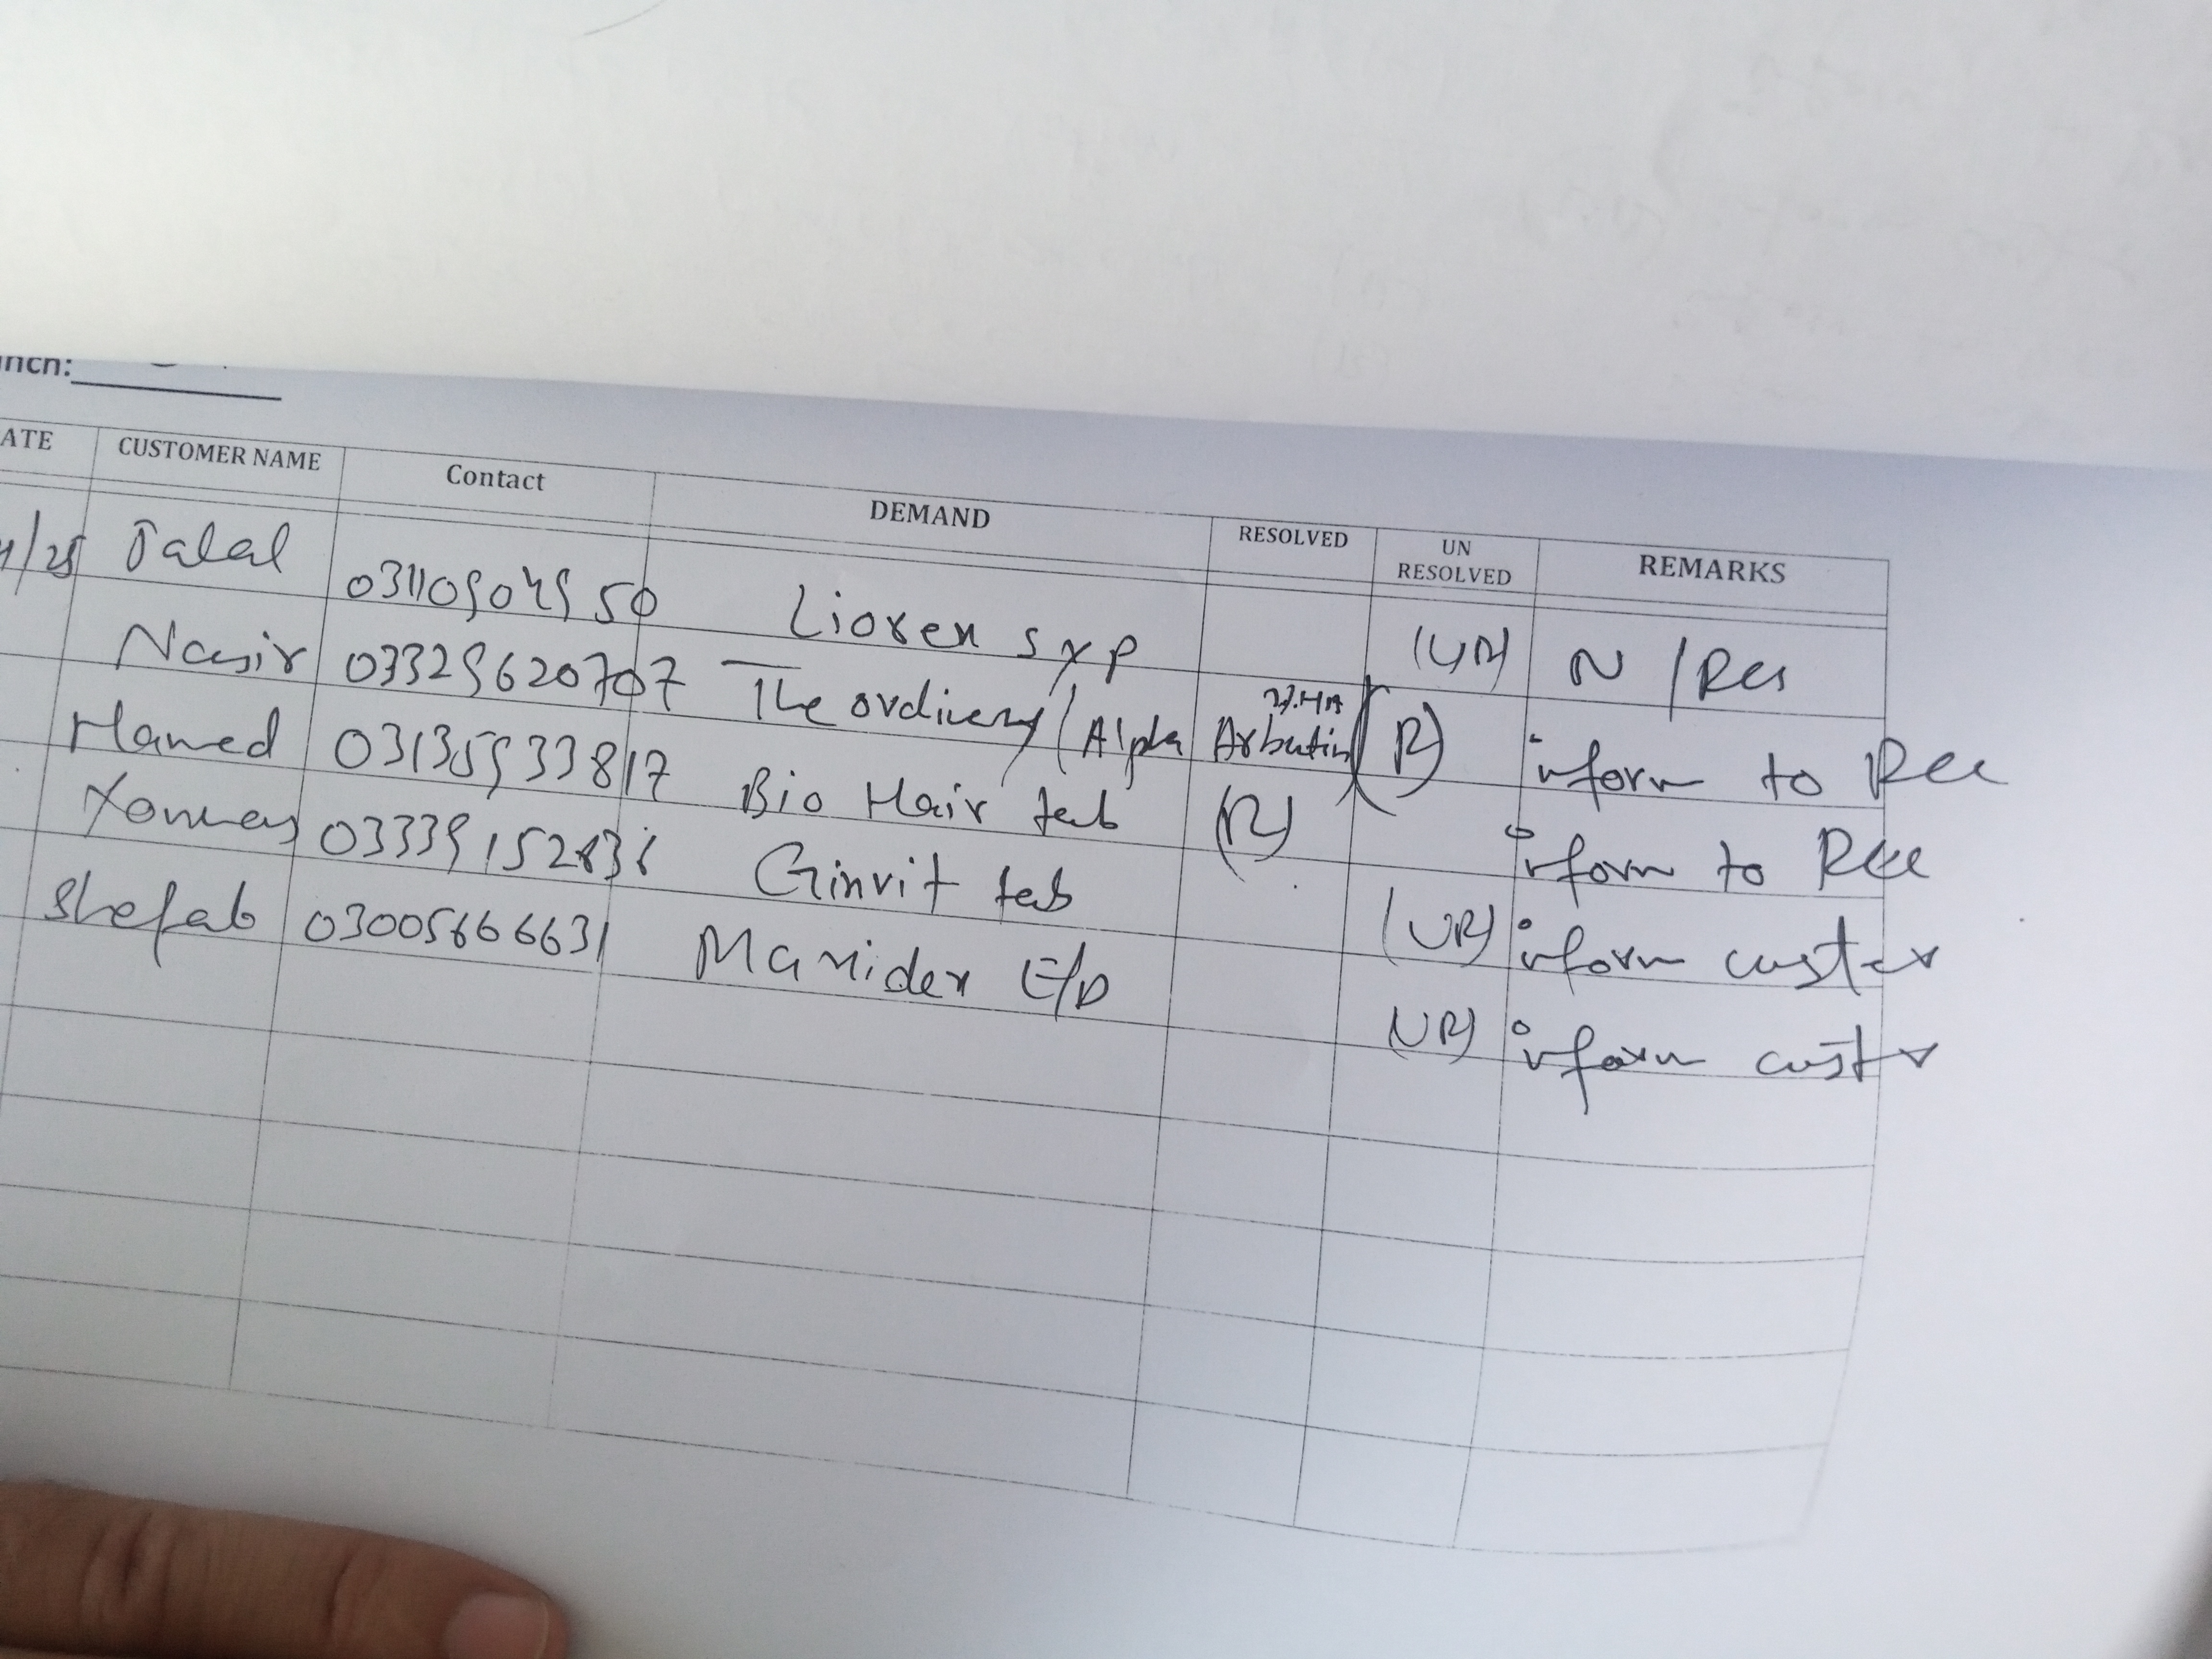 nch:
ATE CUSTOMER NAME Contact DEMAND RESOLVED UN RESOLVED REMARKS
/25 Jalal Liorex syp (UR) N/Res
Nasir 03329620707 The ordinery (Alpha Arbutin 2%.HA) (R) inform to Rec
Hamed 03135933817 Bio Hair tab (R) inform to Rec
Ginvit tab (UR) inform custer
Shefab 03005666631 Maxidex E/D (UR) inform custr